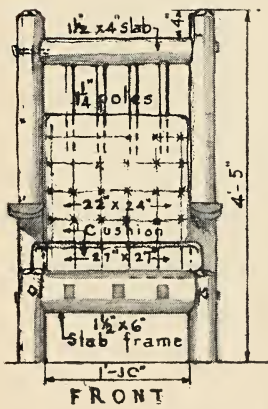 1½" x 4" slab
4"
1¼"
poles
4'-5"
22" x 24"
Cushion
27" x 27"
1½" x 6"
Slab frame
1'-10"
FRONT